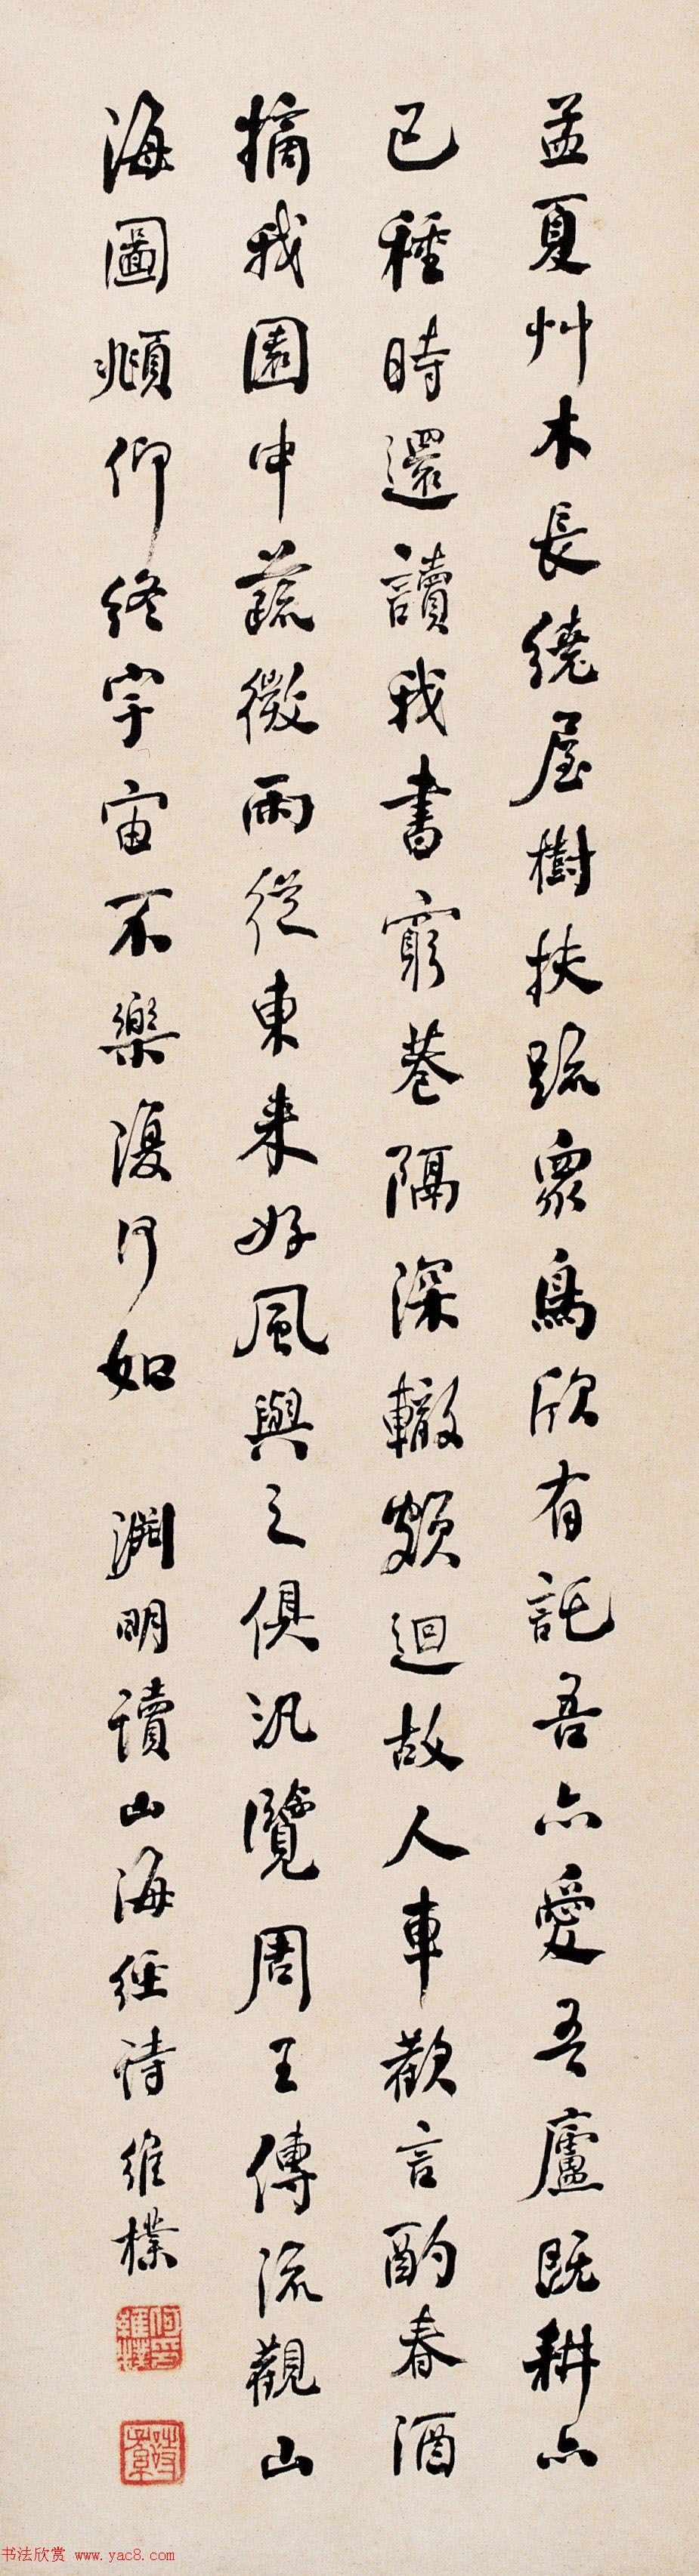 孟夏艸木長繞屋樹扶疏眾鳥欣有託吾亦愛吾廬既耕亦
已種時還讀我書窮巷隔深轍頗迴故人車歡言酌春酒
摘我園中蔬微雨從東来好風與之俱汎覽周王傳流觀山
海圖頫仰終宇宙不樂復何如 淵明讀山海經詩維樸
何維樸印
书法欣赏 www.yac8.com